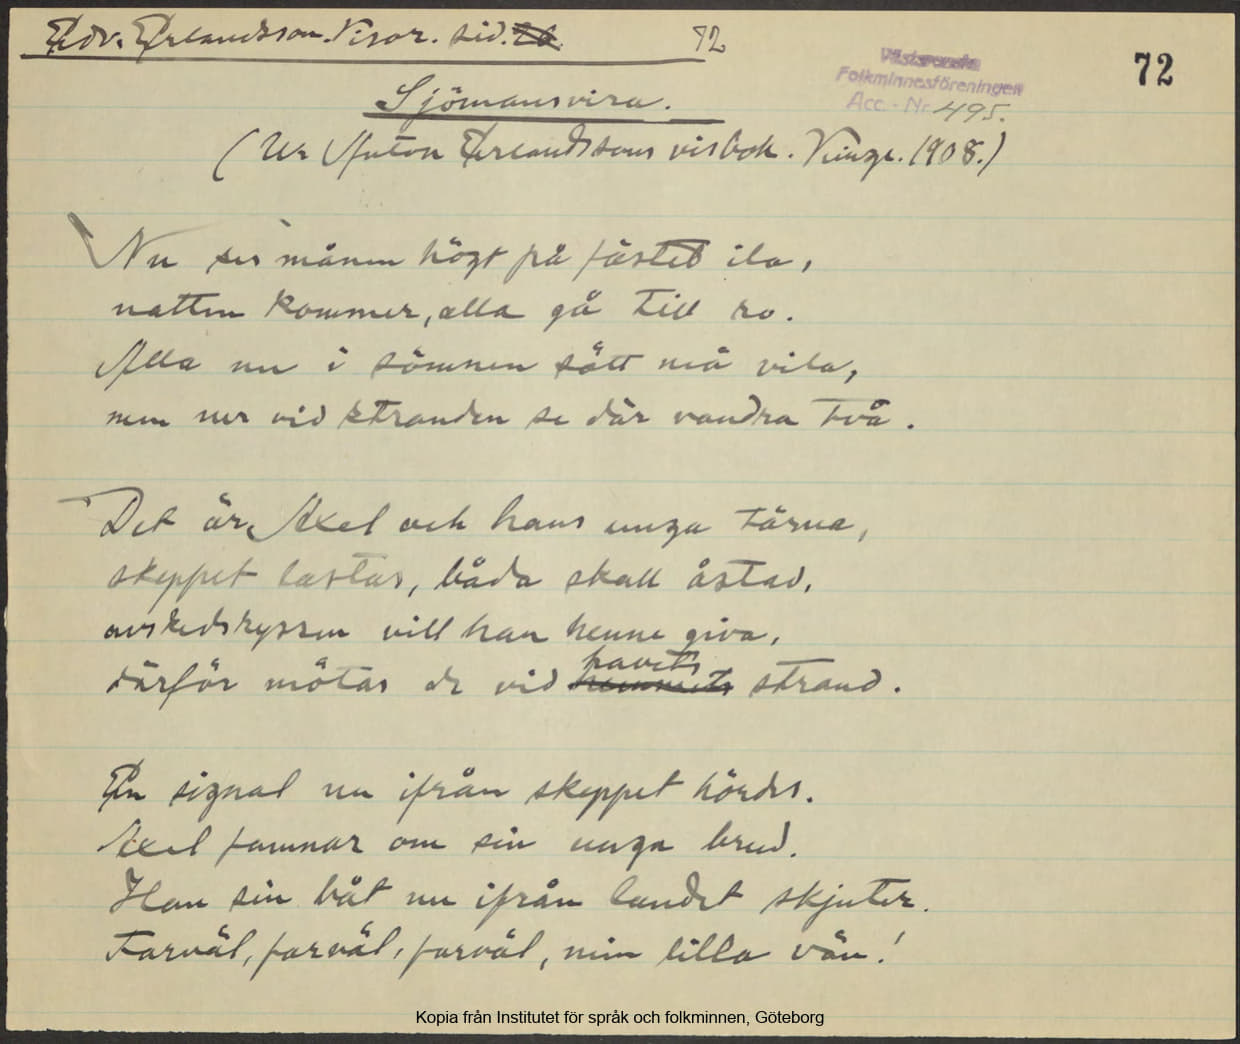 Edv. Erlandsson. Visor. sid. 72
72
Västsvenska
Folkminnesföreningen
Acc.-Nr 495.
Sjömansvisa.
(Ur Anton Erlandssons visbok. Vinga. 1908.)
Nu ses månen högt på fästet ila,
natten kommer, alla gå till ro.
Alla nu i sömnen sött må vila,
men ner vid stranden se där vandra två.
Det är Axel och hans unga tärna,
skeppet lastas, båda skall åstad,
avskedskyssen vill han henne giva,
därför mötas de vid havets strand.
En signal nu ifrån skeppet hördes.
Axel famnar om sin unga brud.
Han sin båt nu ifrån landet skjuter.
Farväl, farväl, farväl, min lilla vän!
Kopia från Institutet för språk och folkminnen, Göteborg